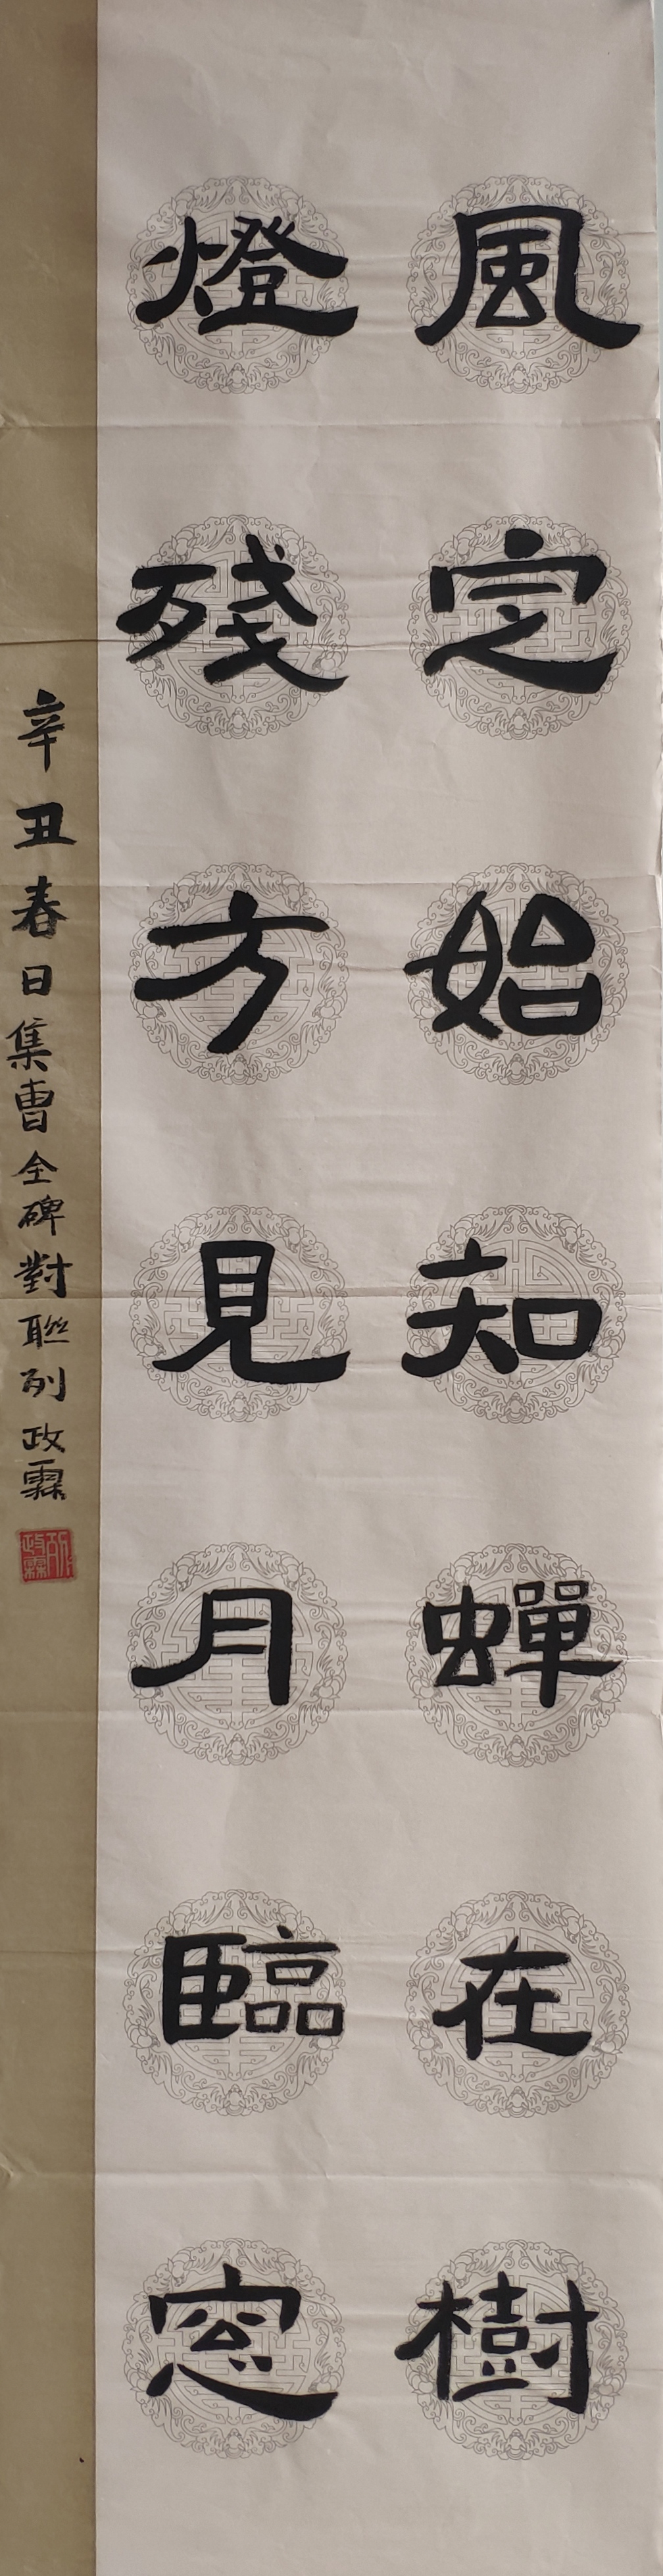 風定始知蟬在樹
燈殘方見月臨窓
辛丑春日集曹全碑對聯列政霖